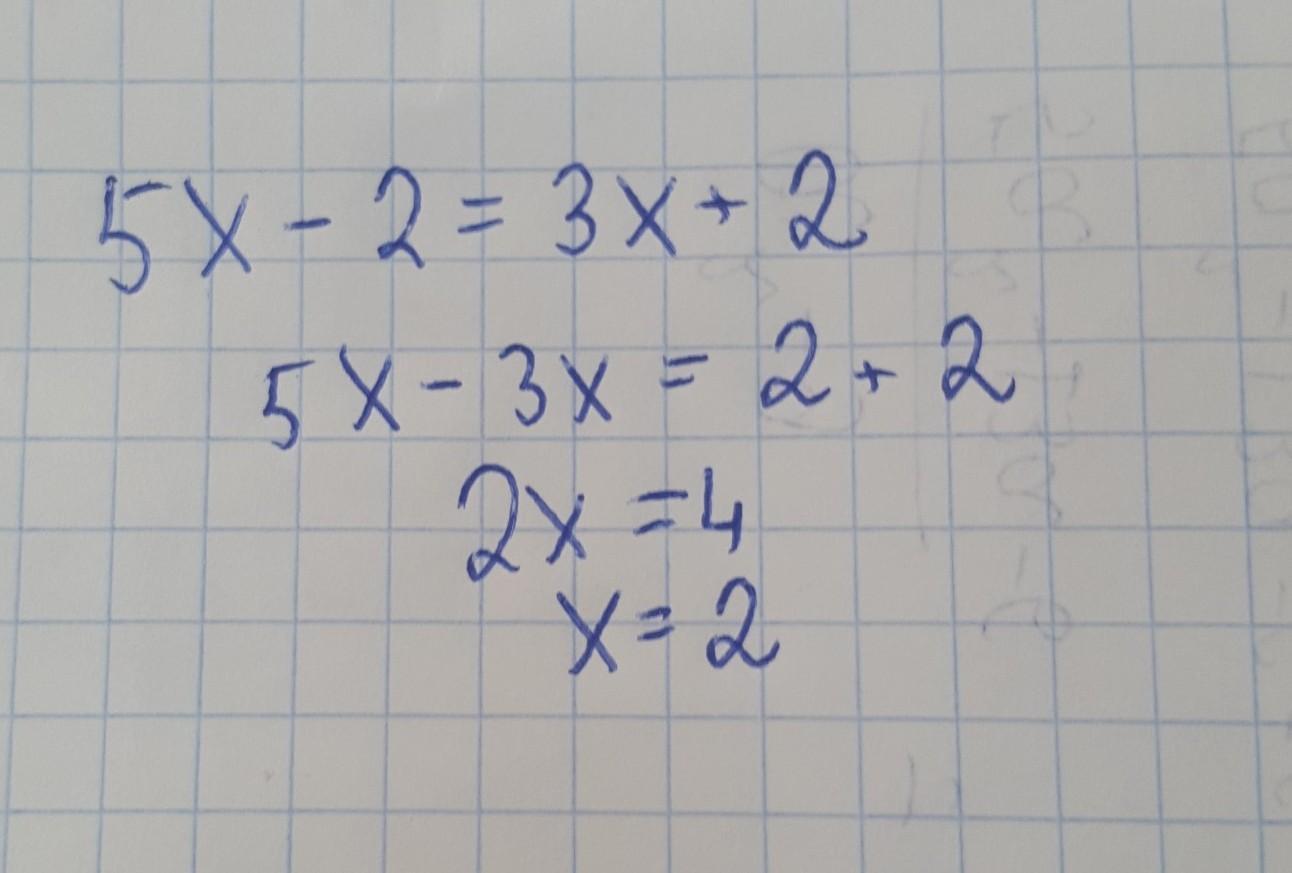 5x - 2 = 3x + 2
5x - 3x = 2 + 2
2x = 4
x = 2